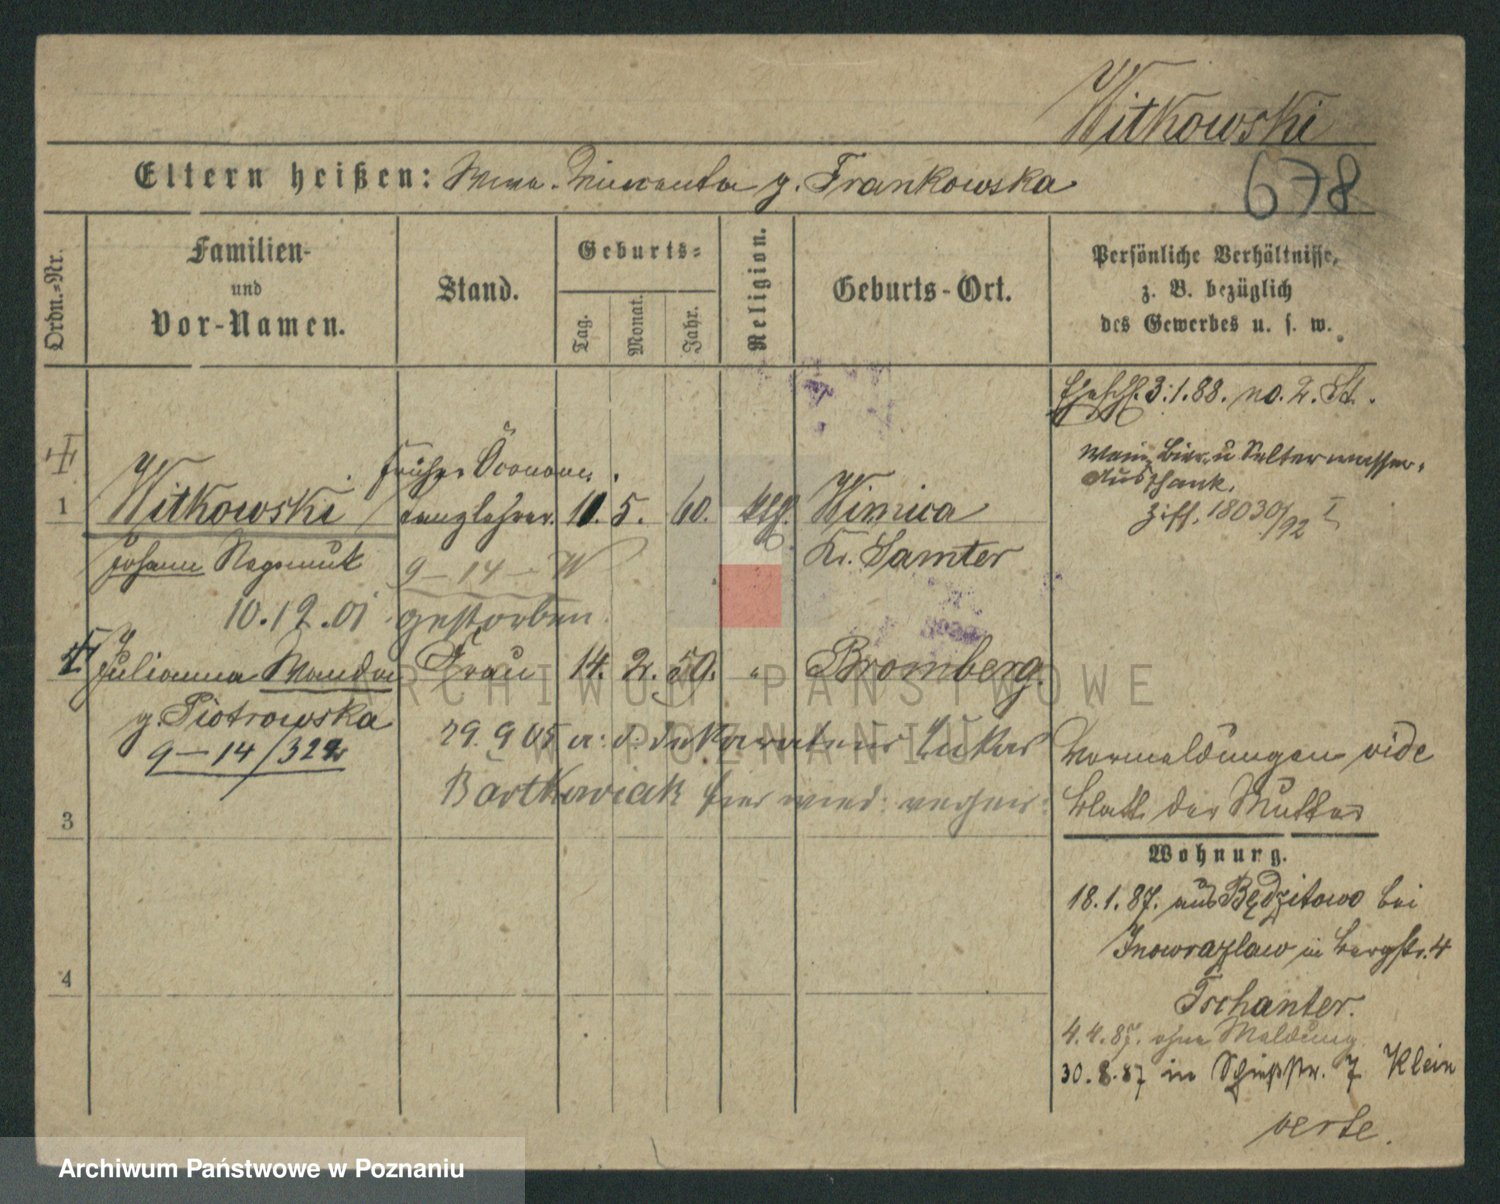 Witkowski
678
Eltern heißen: g. Frankowska
Ordn.-Nr.
Familien-
und
Vor-Namen.
Stand.
Geburts-
Tag.
Monat.
Jahr.
Religion.
Geburts-Ort.
Persönliche Verhältnisse,
z. B. bezüglich
des Gewerbes u. s. w.
Eheschl. 3.1.88. no. 2. St.
Wein, Bier u Selterwasser-
Ausschank.
Ziff. 18030/92 I
früher Öconom
1 Witkowski Tanzlehrer. 10. 5. 60. Wimica
Johann Kr. Samter
9-14-W
10.12.01 gestorben
Julianna Wanda Frau 14. 2. 59. " Bromberg.
g. Piotrowska
9-14/322
29.9.05 a. d. Lukas
Bartkowiak hier wied. verheir.
Vormeldungen vide
Blatt der Mutter
3
Wohnung.
18.1.87. aus Będzitowo bei
Inowrazlaw in Bergstr. 4
Tschanter.
4.4.87. ohne Meldung
30.8.87 in Schießstr. 7 Klein
verte.
4
ARCHIWUM PAŃSTWOWE
W POZNANIU
Archiwum Państwowe w Poznaniu